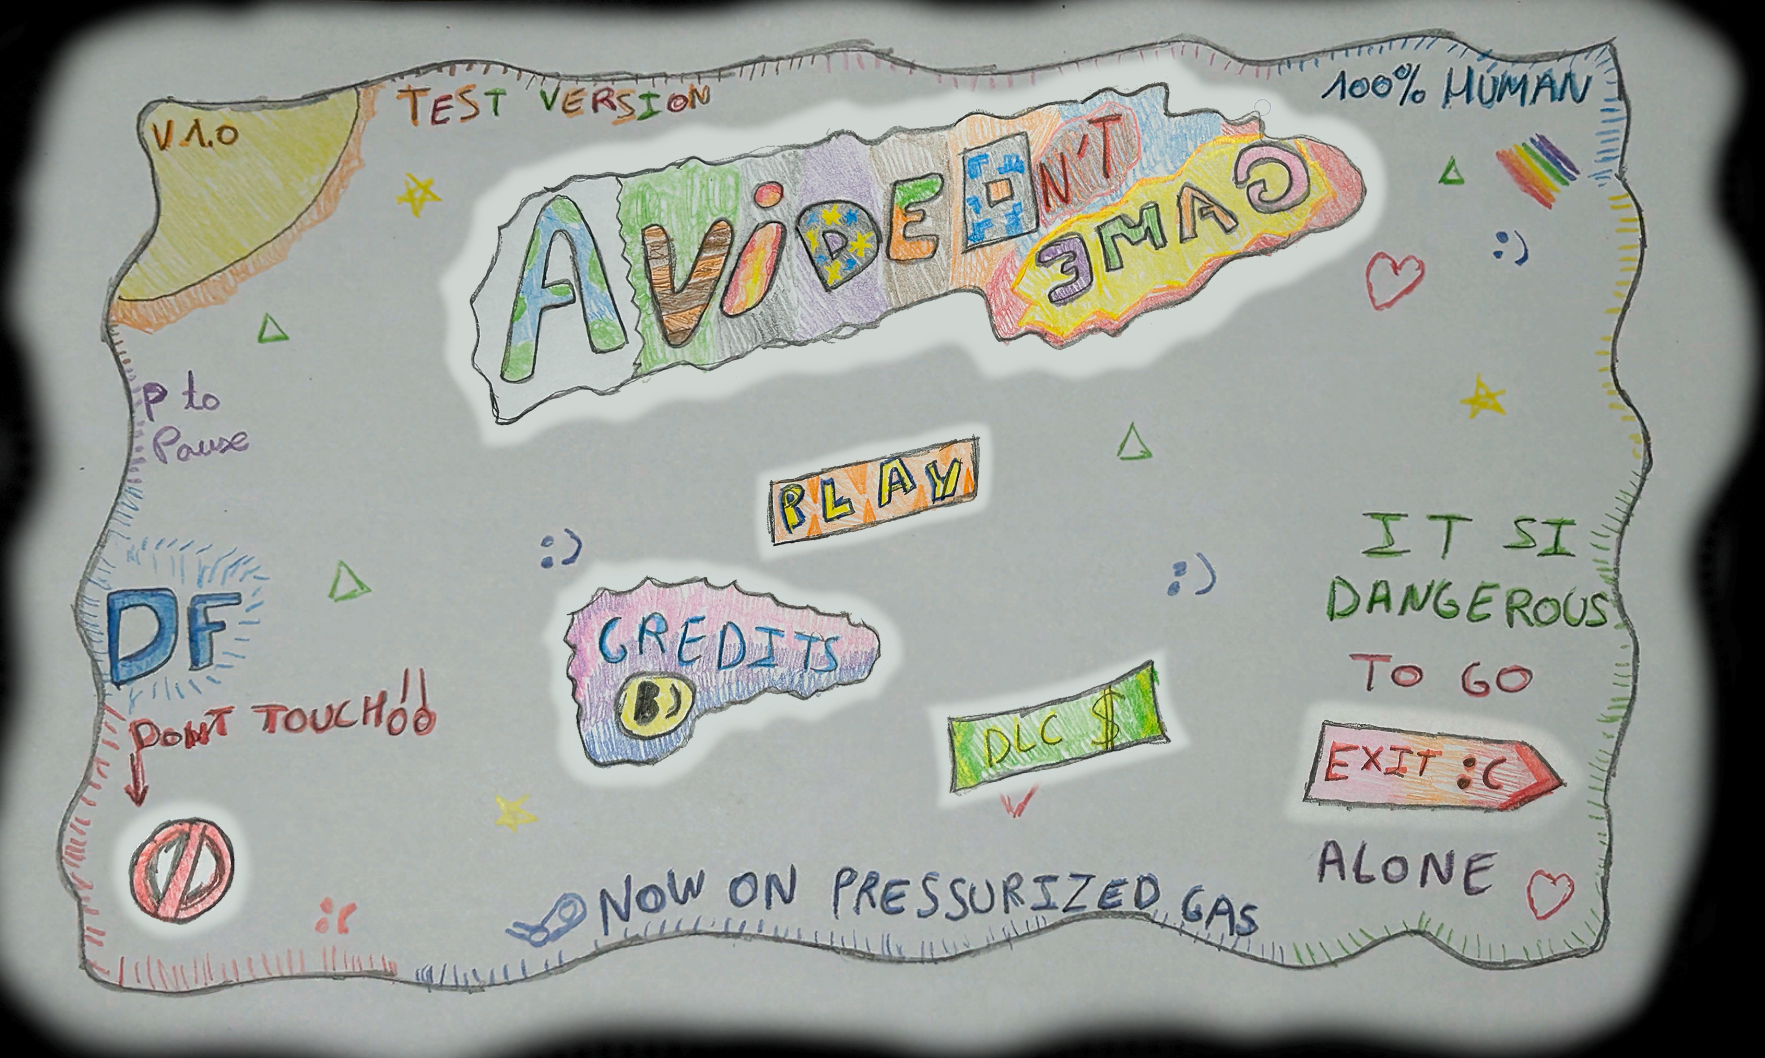 V 1.0
TEST VERSION
100% HUMAN
A VIDEO
N'T
GAME
P to
Pause
PLAY
:)
:)
:)
IT SI
DANGEROUS
TO GO
EXIT :C
ALONE
DF
CREDITS
B)
DLC $
DONT TOUCH!!
:C
NOW ON PRESSURIZED GAS